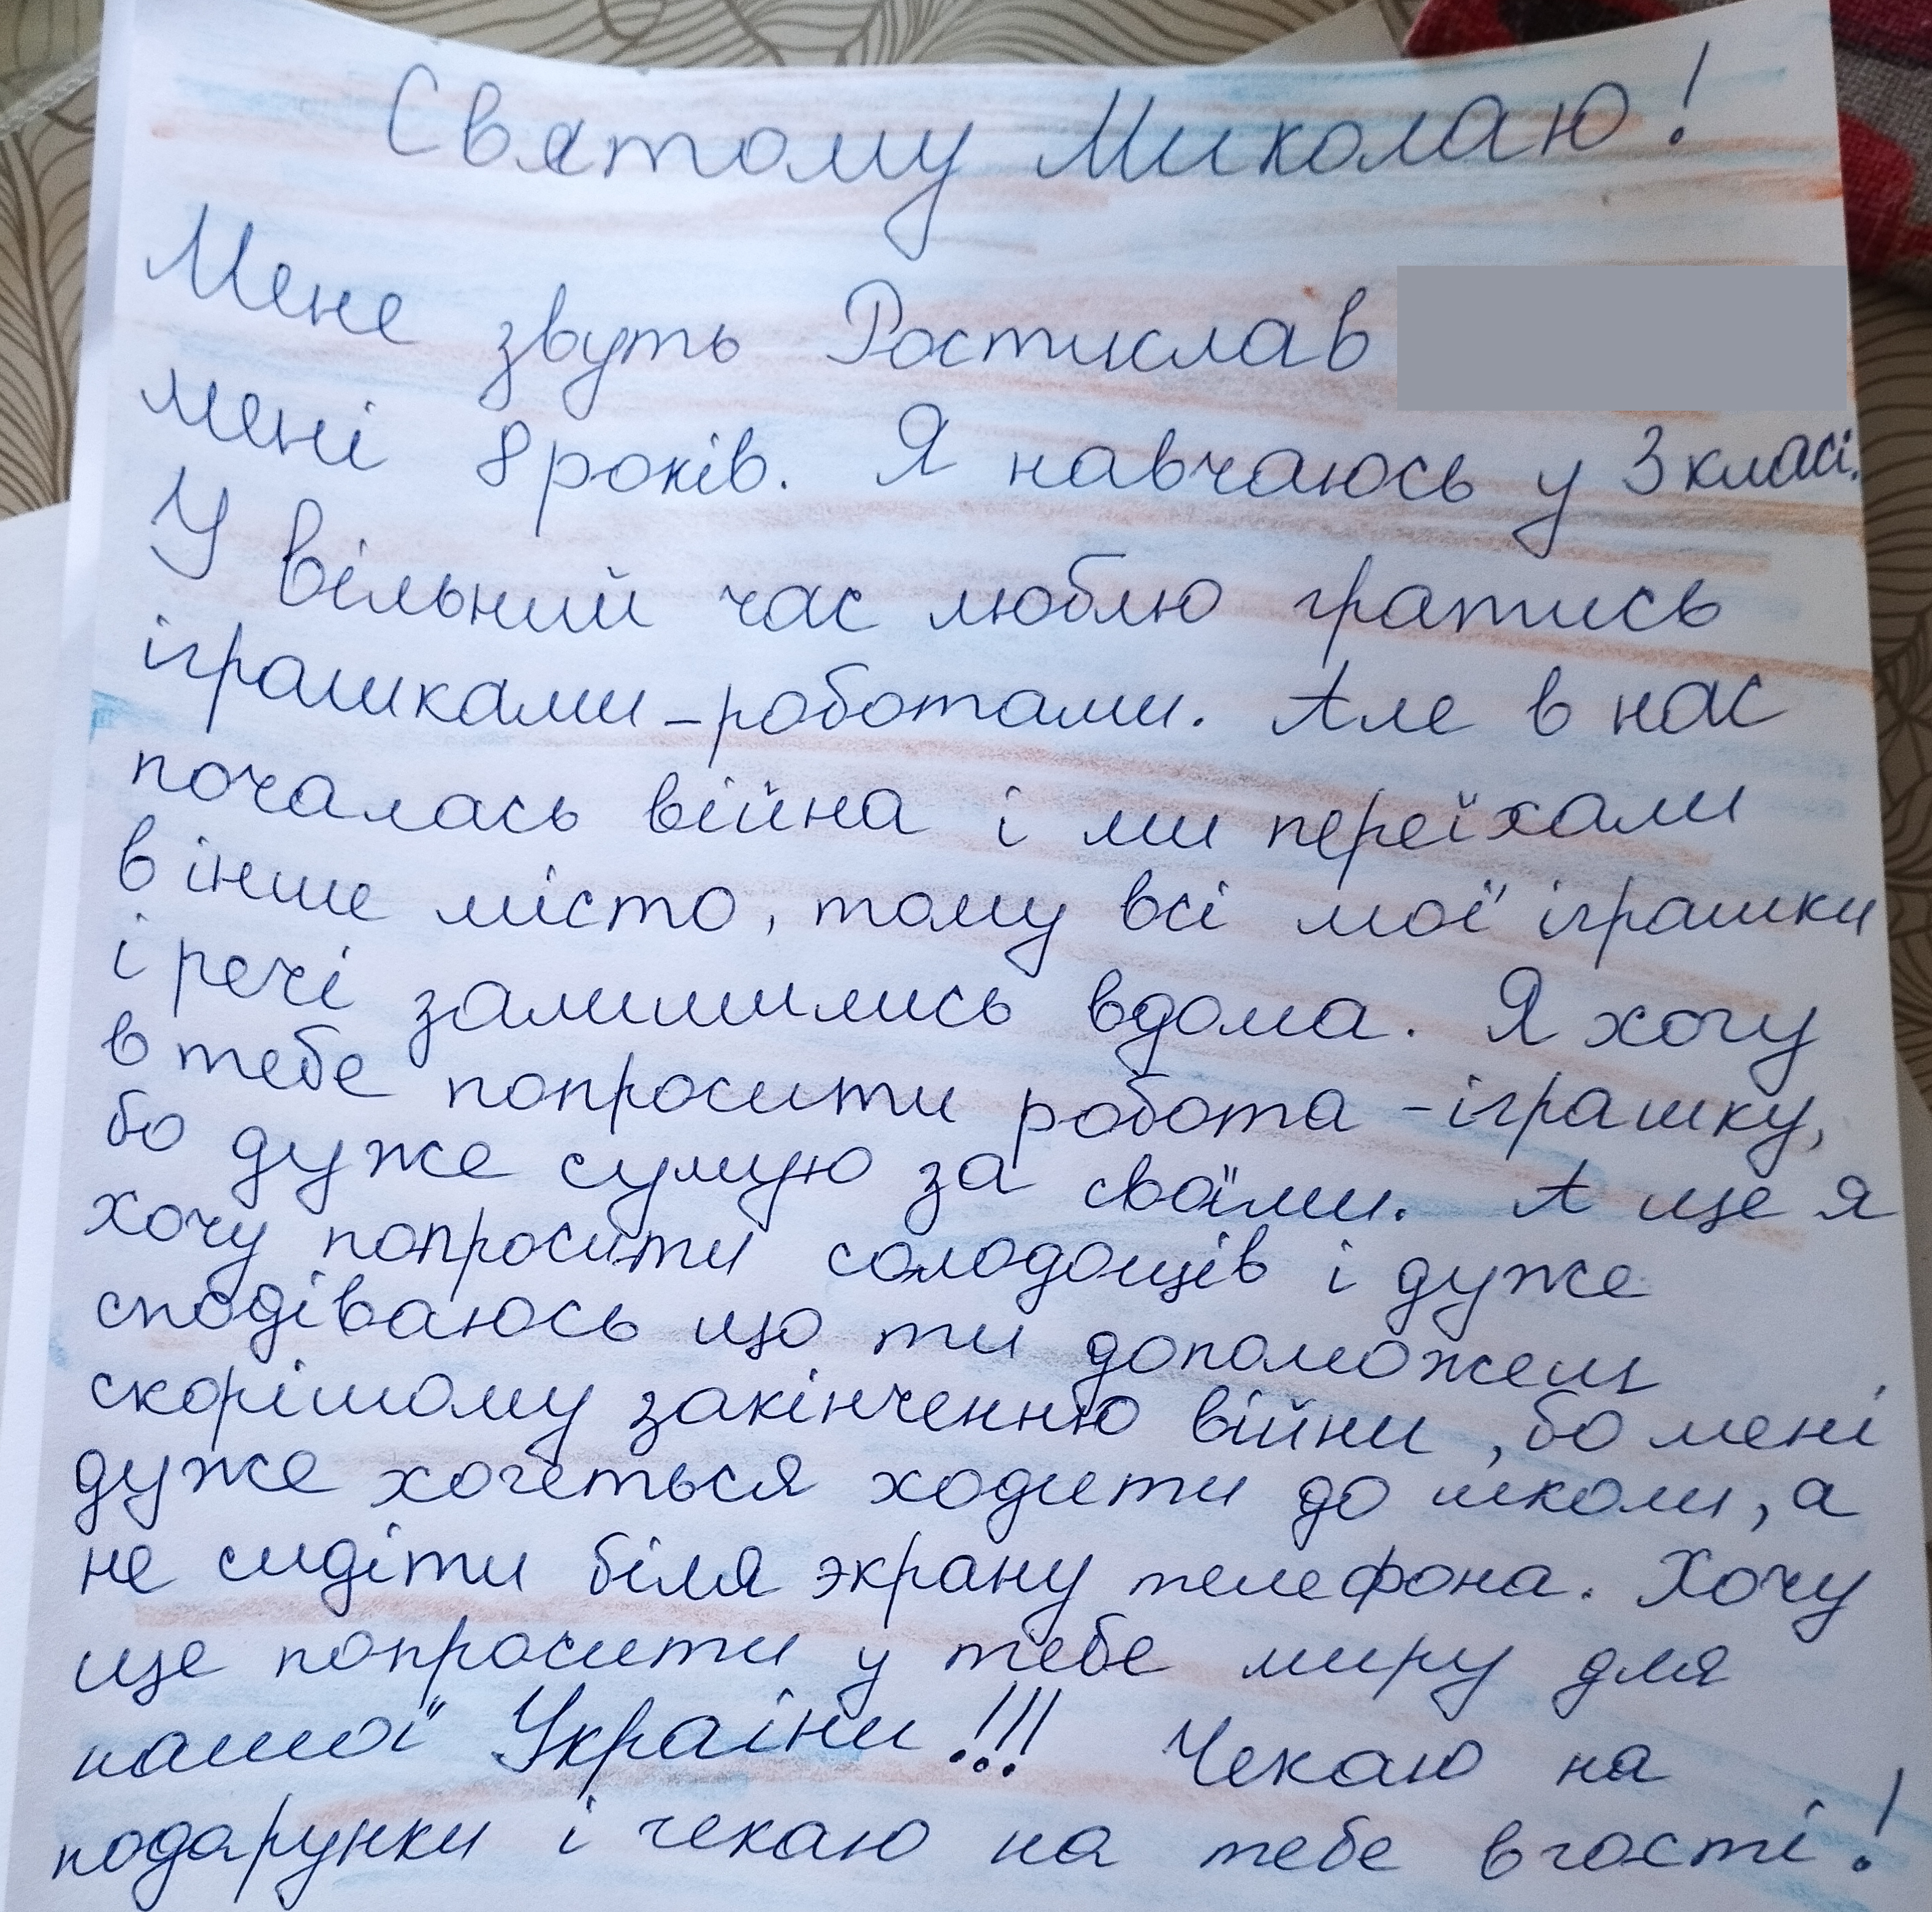 Святому Миколаю!
Мене звуть Ростислав
мені 8 років. Я навчаюсь у 3 класі.
У вільний час люблю гратись
іграшками-роботами. Але в нас
почалась війна і ми переїхали
в інше місто, тому всі мої іграшки
і речі залишились вдома. Я хочу
в тебе попросити робота-іграшку,
бо дуже сумую за своїми. А ще я
хочу попросити солодощів і дуже
сподіваюсь що ти допоможеш
скорішому закінченню війни, бо мені
дуже хочеться ходити до школи, а
не сидіти біля экрану телефона. Хочу
ще попросити у тебе миру для
нашої України!!! Чекаю на
подарунки і чекаю на тебе в гості!